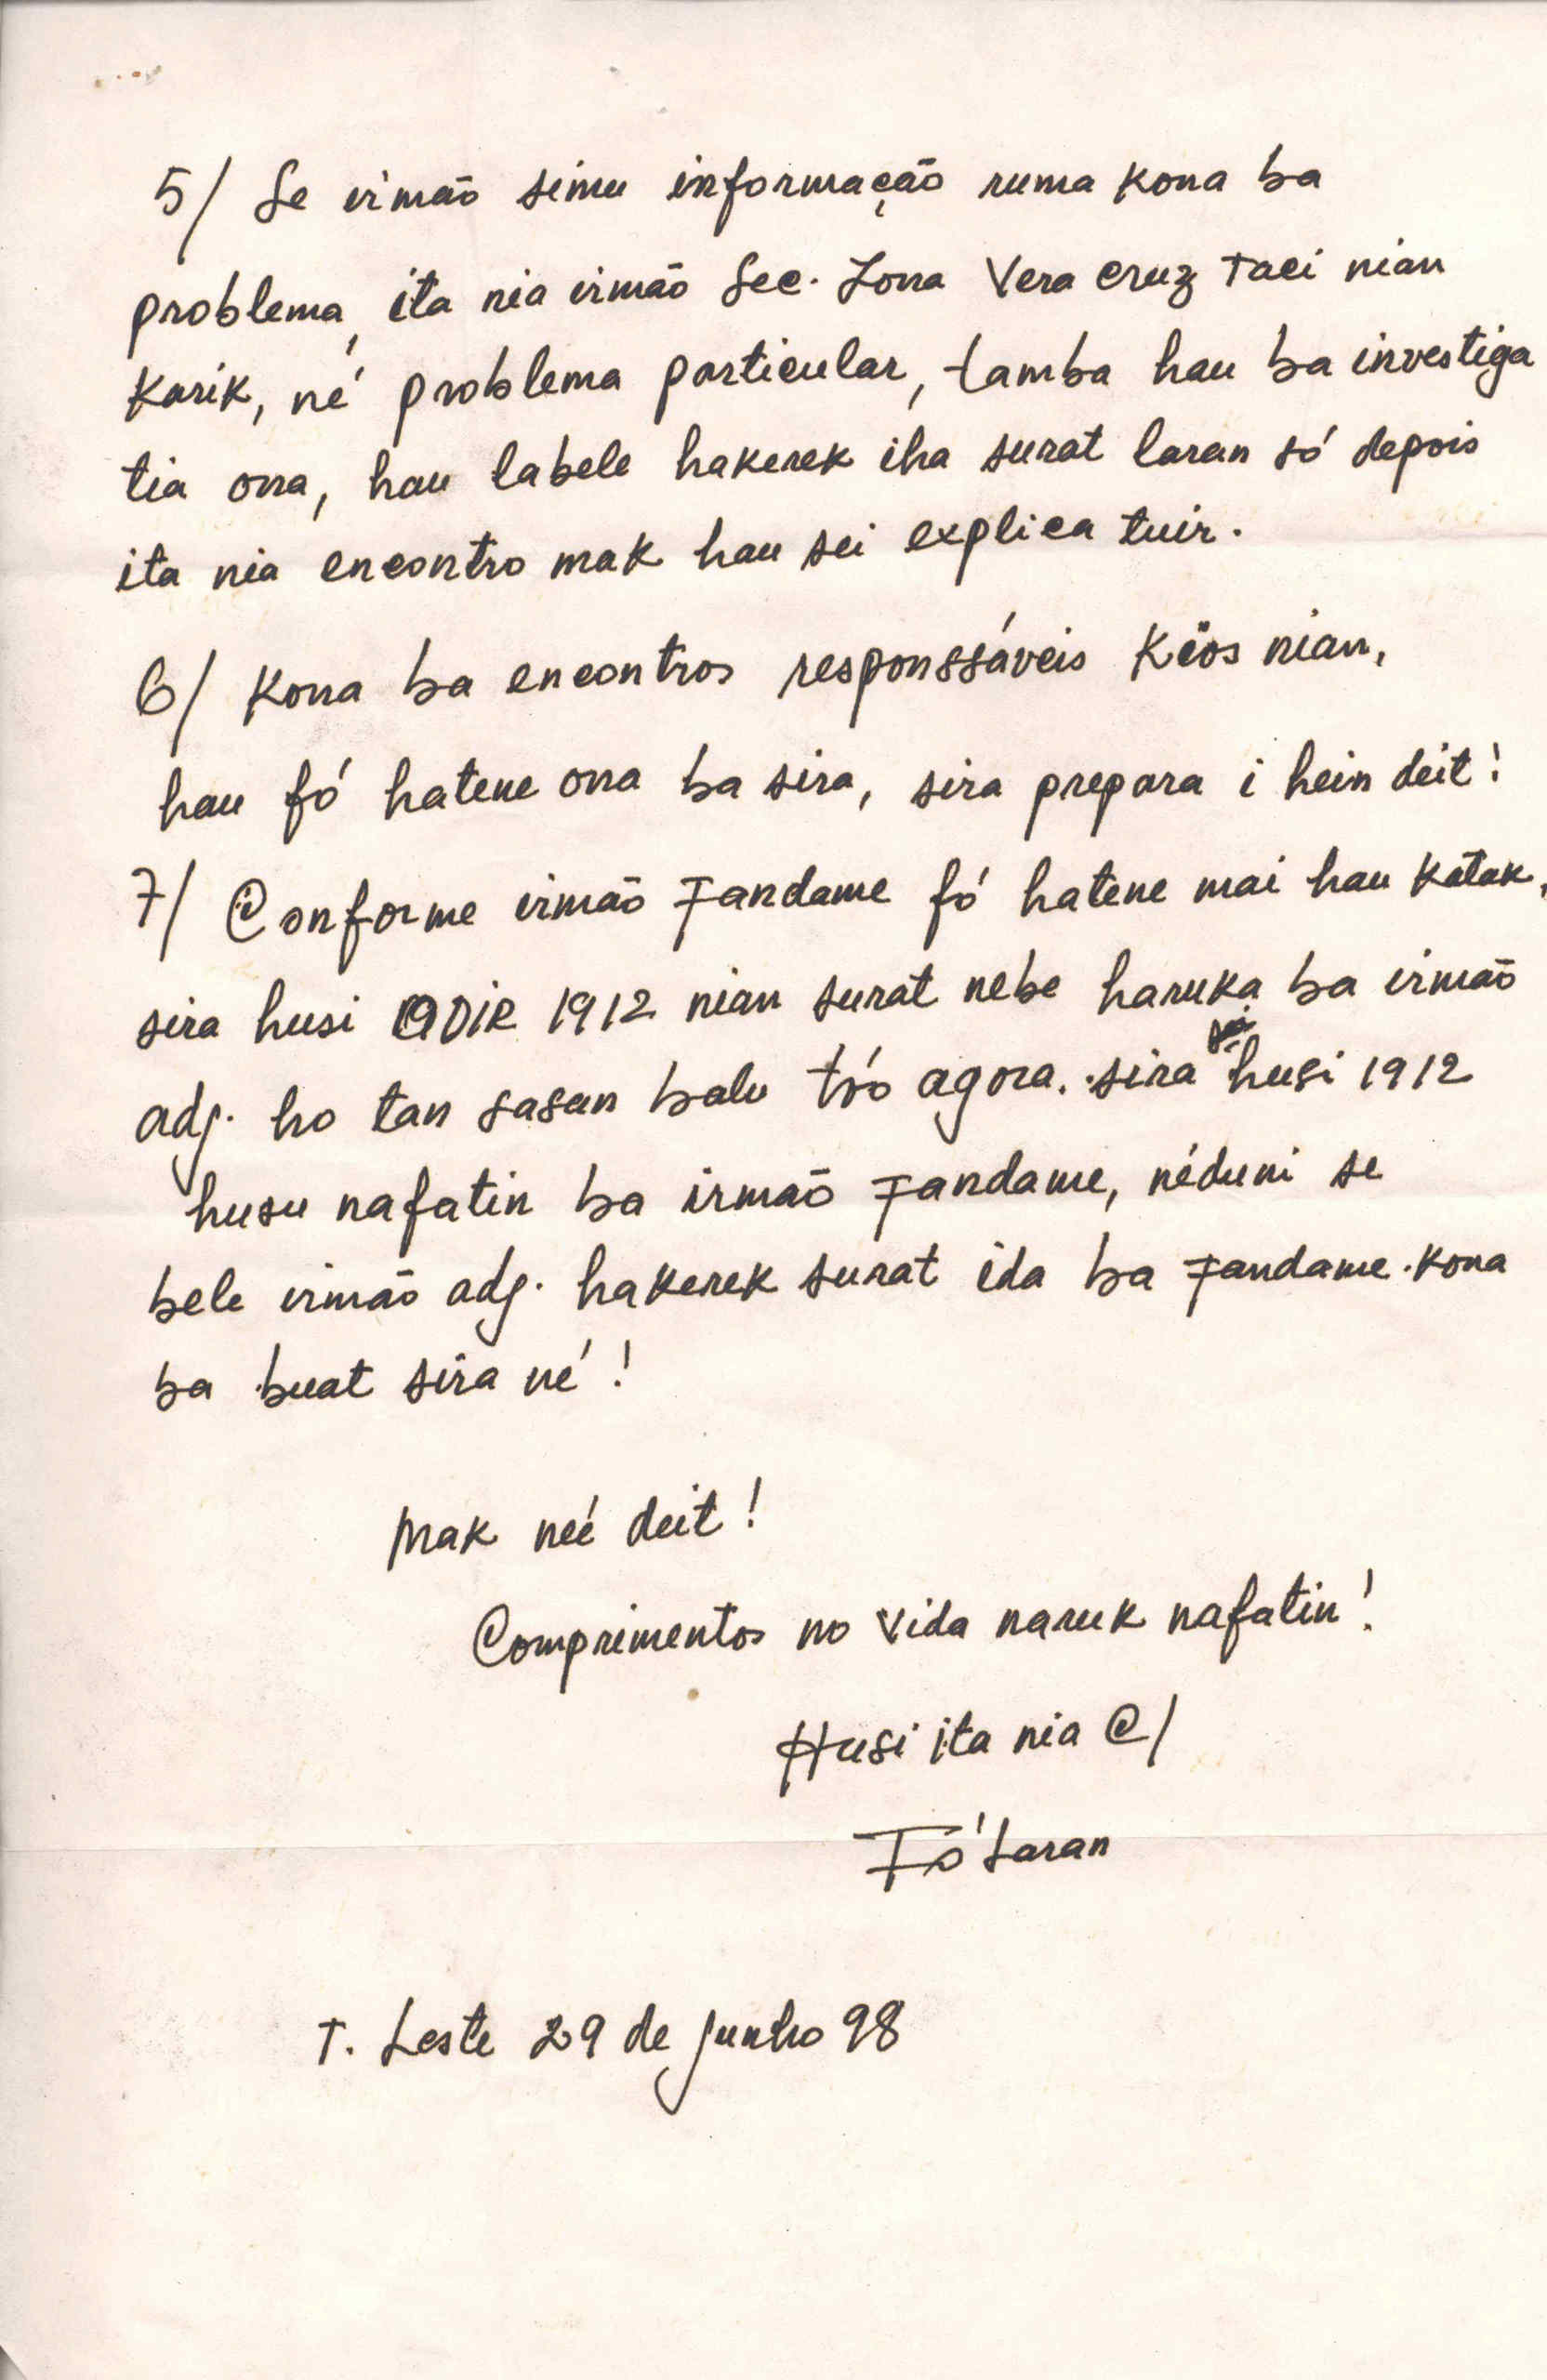 5/ Se irmão simu informação ruma kona ba
problema, ita nia irmão Sec. Zona Vera Cruz Taci nian
karik, né problema particular, tamba hau ba investiga
tia ona, hau labele hakerek iha surat laran só depois
ita nia encontro mak hau sei explica tuir.
6/ Kona ba encontros responssáveis Këos nian,
hau fó hatene ona ba sira, sira prepara i hein deit!
7/ Conforme irmão Fandame fó hatene mai hau katak,
sira husi ODIR 1912 nian surat nebe haruka ba irmão
adj. ho tan sasan balu tó agora. sira husi 1912
husu nafatin ba irmão Fandame, néduni se
bele irmão adj. hakerek surat ida ba Fandame kona
ba buat sira né!
Mak neé deit!
Comprimentos no vida naruk nafatin!
Husi ita nia C/
Fó Laran
T. Leste 29 de Junho 98